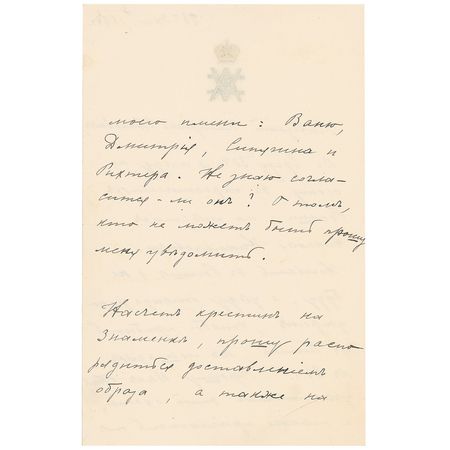 моего имени: Ваню,
Дмитрія, Сипягина и
Рихтера. Не знаю согла-
сится-ли онъ? О томъ,
кто не можетъ быть прошу
меня увѣдомить.
Насчетъ крестинъ на
Знаменкѣ, прошу распо
рядиться доставленіемъ
образа, а также на